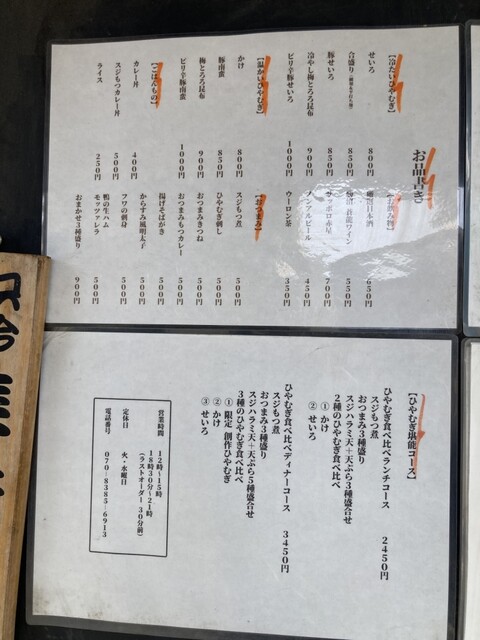 お品書き
【冷たいひやむぎ】
せいろ 800円
合盛り 850円
豚せいろ 850円
冷やし梅とろろ昆布 900円
ピリ辛豚せいろ 1000円
【温かいひやむぎ】
かけ 800円
豚南蛮 850円
梅とろろ昆布 900円
ピリ辛豚南蛮 1000円
【ごはんもの】
カレー丼 400円
スジもつカレー丼 500円
ライス 250円
日本酒 650円
ワイン 550円
サッポロ赤星 700円
ノンアルビール 450円
ウーロン茶 350円
【おつまみ】
スジもつ煮 500円
ひやむぎ刺し 500円
おつまみきつね 500円
おつまみもつカレー 500円
揚げそばがき 500円
からすみ風明太子 500円
フワの刺身 500円
鴨の生ハム 500円
モッツァレラ 500円
おまかせ3種盛り 900円
【ひやむぎ堪能コース】
ひやむぎ食べ比べランチコース 2450円
スジもつ煮
おつまみ3種盛り
スジハラミ天+天ぷら3種盛合せ
2種のひやむぎ食べ比べ
①かけ
②せいろ
ひやむぎ食べ比べディナーコース 3450円
スジもつ煮
おつまみ3種盛り
スジハラミ天+天ぷら5種盛合せ
3種のひやむぎ食べ比べ
①限定 創作ひやむぎ
②かけ
③せいろ
営業時間 12時~15時
18時30分~21時
(ラストオーダー30分前)
定休日 火・水曜日
電話番号 070-8385-6913